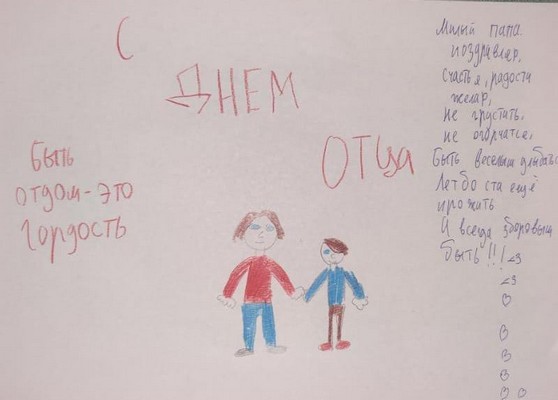 С
ДНЕМ
ОТЦа
Быть
отдом-это
гордость
Милый папа.
поздравляю,
Счастья, радости
желаю,
не грустить,
не огорчаться,
Быть веселым улыбаться
Лет до ста ещё
прожить
И всегда здоровым
быть!!! <3
<3